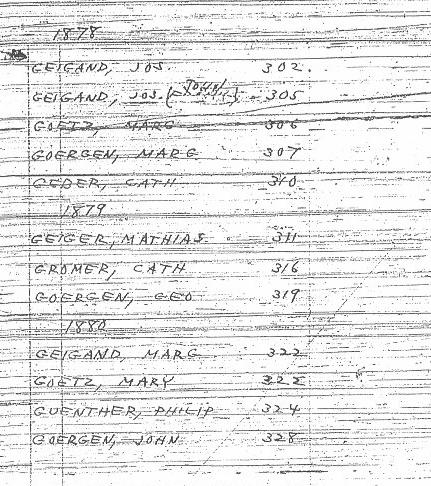 1878
GEIGAND, JOS. 302.
GEIGAND, JOS. (JOHN) 305
GOETZ, MARG 306
GOERGEN, MARG 307
GEBER, CATH 310
1879
GEIGER, MATHIAS. 311
GROMER, CATH 316
GOERGEN, GEO 319
1880
GEIGAND, MARG 322
GOETZ, MARY 322
GUENTHER, PHILIP 324
GOERGEN, JOHN 328